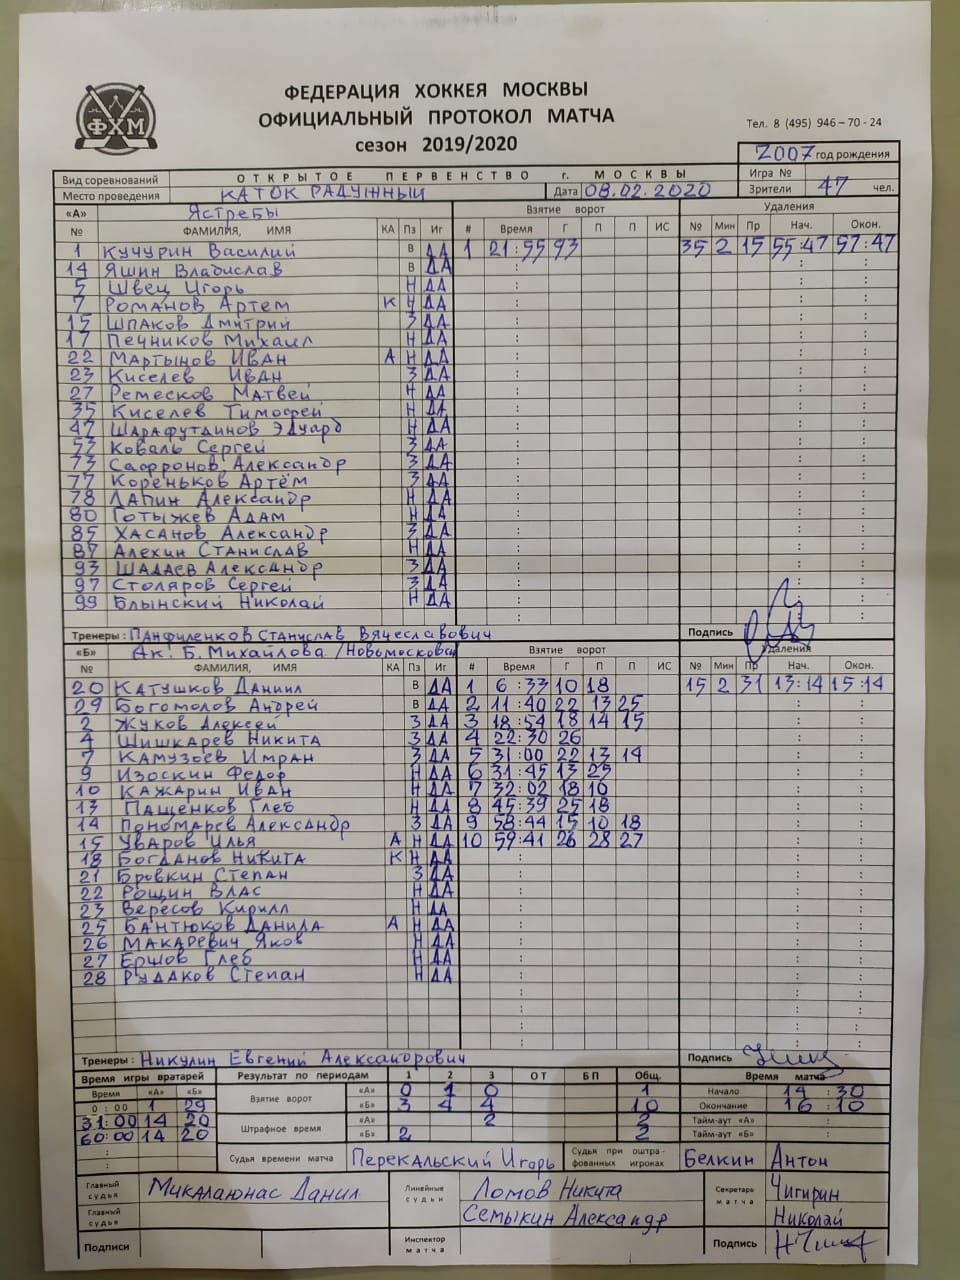 ФХМ
ФЕДЕРАЦИЯ ХОККЕЯ МОСКВЫ
ОФИЦИАЛЬНЫЙ ПРОТОКОЛ МАТЧА
сезон 2019/2020
Тел. 8 (495) 946-70-24
2007 год рождения
Вид соревнований ОТКРЫТОЕ ПЕРВЕНСТВО г. МОСКВЫ Игра №
Место проведения КАТОК РАДУЖНЫЙ Дата 08.02.2020 Зрители 47 чел.
«А» Ястребы Взятие ворот Удаления
№ ФАМИЛИЯ, ИМЯ КА Пз Иг # Время Г П П ИС № Мин Пр Нач. Окон.
1 Кучурин Василий В ДА 1 21:55 93 35 2 15 55:47 57:47
14 Яшин Владислав В ДА
5 Швец Игорь Н ДА
7 Романов Артем К Н ДА
15 Шпаков Дмитрий З ДА
17 Печников Михаил Н ДА
22 Мартынов Иван А Н ДА
23 Киселев Иван З ДА
27 Ремесков Матвей Н ДА
35 Киселев Тимофей Н ДА
47 Шарафутдинов Эдуард Н ДА
57 Коваль Сергей З ДА
73 Сафронов Александр З ДА
77 Кореньков Артём З ДА
78 Лапин Александр Н ДА
80 Готыжев Адам Н ДА
85 Хасанов Александр З ДА
87 Алехин Станислав Н ДА
93 Шадаев Александр З ДА
97 Столяров Сергей З ДА
99 Блынский Николай Н ДА
Тренеры: Панфиленков Станислав Вячеславович Подпись
«Б» Ак. Б. Михайлова /Новомосковск Взятие ворот Удаления
№ ФАМИЛИЯ, ИМЯ КА Пз Иг # Время Г П П ИС № Мин Пр Нач. Окон.
20 Катушков Даниил В ДА 1 6:33 10 18 15 2 31 13:14 15:14
29 Богомолов Андрей В ДА 2 11:40 22 13 25
2 Жуков Алексей З ДА 3 18:54 18 14 15
4 Шишкарев Никита З ДА 4 22:30 26
7 Камузоев Имран З ДА 5 31:00 22 13 14
9 Изоскин Федор Н ДА 6 31:45 13 25
10 Кажарин Иван Н ДА 7 32:02 18 10
13 Пащенков Глеб Н ДА 8 45:39 25 18
14 Пономарев Александр З ДА 9 58:44 15 10 18
15 Уваров Илья А Н ДА 10 59:41 26 28 27
18 Богданов Никита К Н ДА
21 Бровкин Степан З ДА
22 Рощин Влас Н ДА
23 Вересов Кирилл Н ДА
25 Бантюков Данила А Н ДА
26 Макаревич Яков Н ДА
27 Ершов Глеб Н ДА
28 Рудаков Степан Н ДА
Тренеры: Никулин Евгений Александрович Подпись
Время игры вратарей Результат по периодам 1 2 3 ОТ БП Общ. Время матча
Время «А» «Б» Взятие ворот «А» 0 1 0 1 Начало 14:30
0:00 1 29 «Б» 3 4 4 10 Окончание 16:10
31:00 14 20 Штрафное время «А» 2 2 Тайм-аут «А»
60:00 14 20 «Б» 2 2 Тайм-аут «Б»
Судья времени матча Перекальский Игорь Судья при оштрафованных игроках Белкин Антон
Главный судья Микалаюнас Данил Линейные судьи Ломов Никита Секретарь матча Чигирин
Главный судья Семыкин Александр Николай
Подписи Инспектор матча Подпись